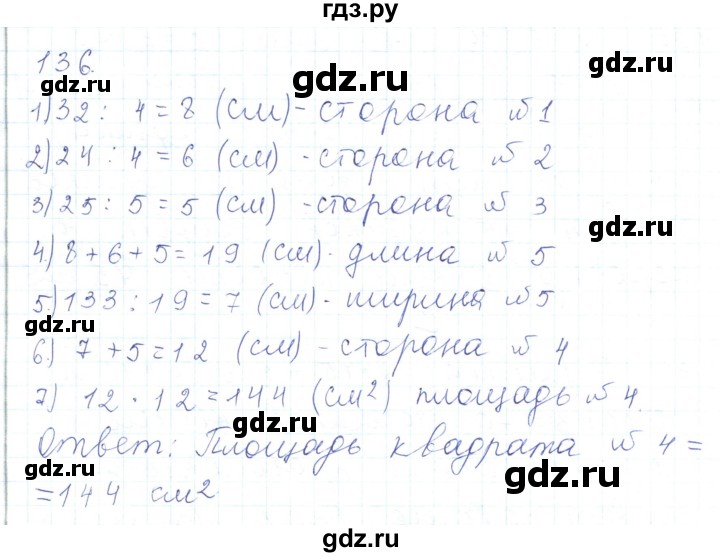 гдз.ру
136.
gdz.ru
gdz.ru
gdz.ru
1) 32 : 4 = 8 (см) - сторона № 1
2) 24 : 4 = 6 (см) - сторона № 2
gdz.ru
3) 25 : 5 = 5 (см) - сторона № 3
gdz.ru
gdz.ru
4.) 8 + 6 + 5 = 19 (см). длина № 5
5.) 133 : 19 = 7 (см) - ширина № 5
gdz.ru
gdz.ru
6.) 7 + 5 = 12 (см) - сторона № 4
7) 12 · 12 = 144 (см²) площадь № 4.
gdz.ru
gdz.ru
Ответ: Площадь квадрата № 4 =
gdz.ru
gdz.ru
= 144 см²
гдз.ру